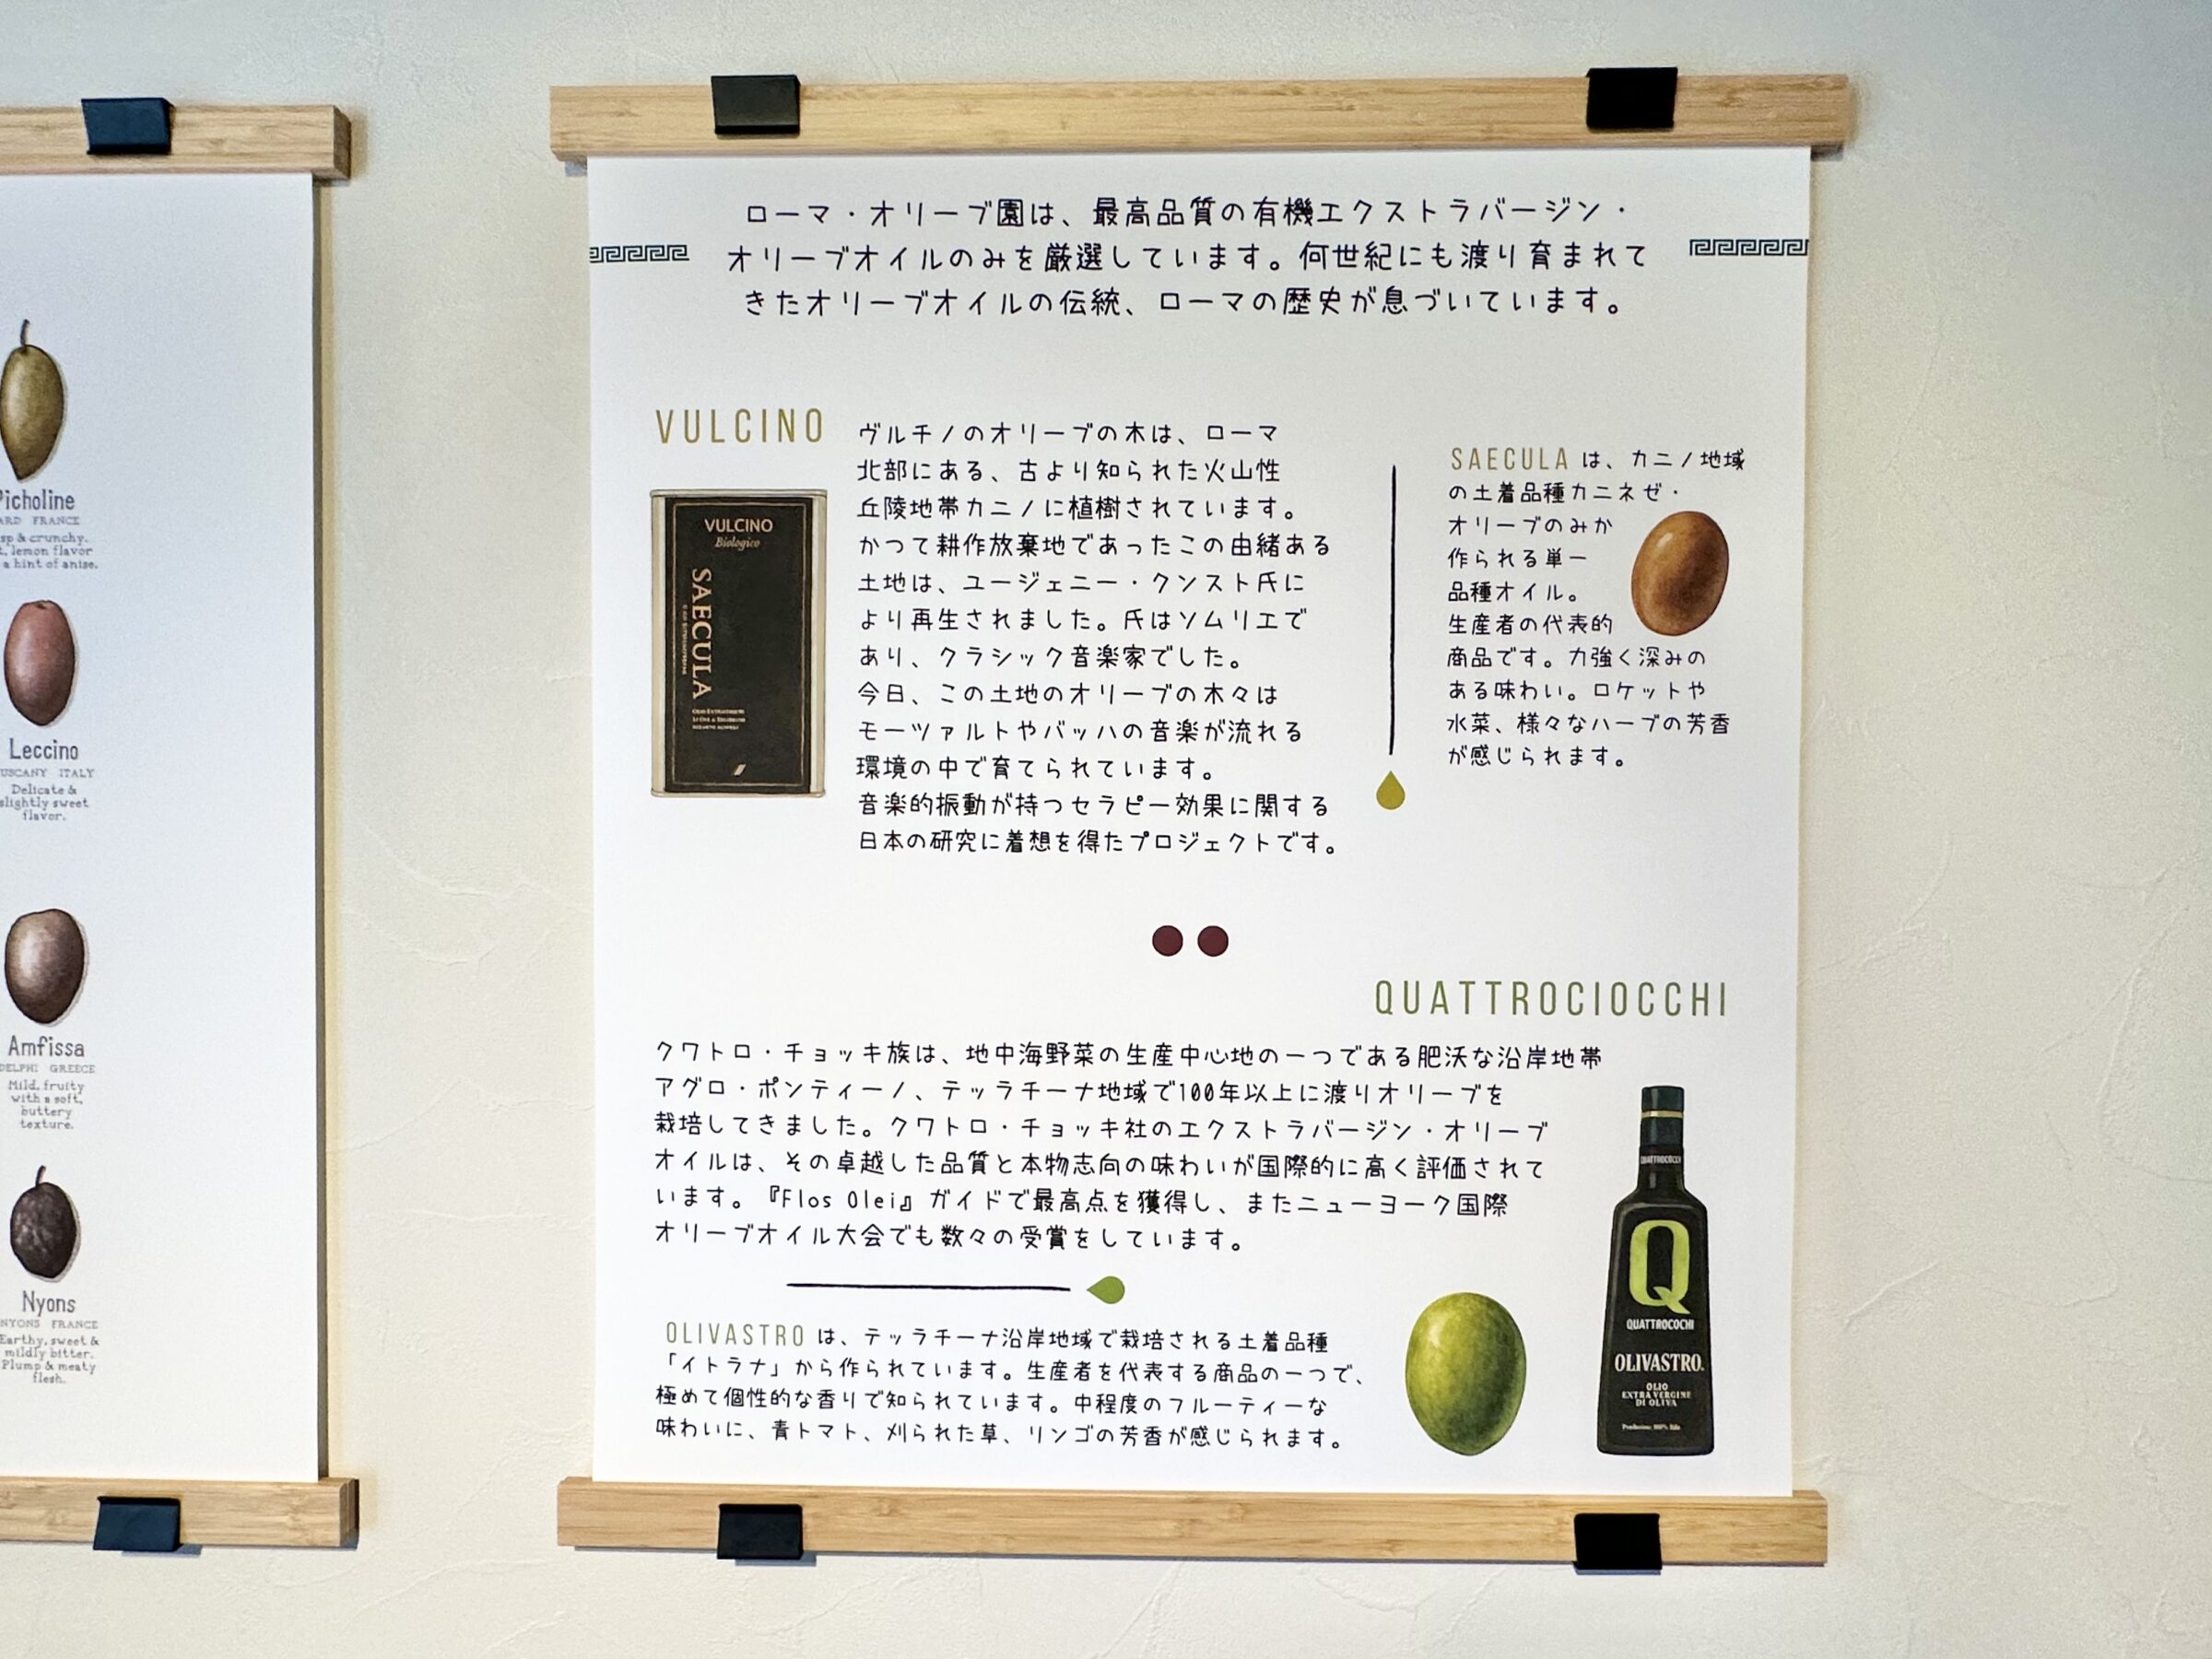 Picholine
ARD FRANCE
sp & crunchy.
t, lemon flavor
a hint of anise.
Leccino
USCANY ITALY
Delicate &
slightly sweet
flavor.
Amfissa
DELPHI GREECE
Mild, fruity
with a soft,
buttery
texture.
Nyons
NYONS FRANCE
Earthy, sweet &
mildly bitter.
Plump & meaty
flesh.
ローマ・オリーブ園は、最高品質の有機エクストラバージン・
オリーブオイルのみを厳選しています。何世紀にも渡り育まれて
きたオリーブオイルの伝統、ローマの歴史が息づいています。
VULCINO
VULCINO
Biologico
SAECULA
ヴルチノのオリーブの木は、ローマ
北部にある、古より知られた火山性
丘陵地帯カニノに植樹されています。
かつて耕作放棄地であったこの由緒ある
土地は、ユージェニー・クンスト氏に
より再生されました。氏はソムリエで
あり、クラシック音楽家でした。
今日、この土地のオリーブの木々は
モーツァルトやバッハの音楽が流れる
環境の中で育てられています。
音楽的振動が持つセラピー効果に関する
日本の研究に着想を得たプロジェクトです。
SAECULA は、カニノ地域
の土着品種カニネゼ・
オリーブのみか
作られる単一
品種オイル。
生産者の代表的
商品です。力強く深みの
ある味わい。ロケットや
水菜、様々なハーブの芳香
が感じられます。
QUATTROCIOCCHI
クワトロ・チョッキ族は、地中海野菜の生産中心地の一つである肥沃な沿岸地帯
アグロ・ポンティーノ、テッラチーナ地域で100年以上に渡りオリーブを
栽培してきました。クワトロ・チョッキ社のエクストラバージン・オリーブ
オイルは、その卓越した品質と本物志向の味わいが国際的に高く評価されて
います。『Flos Olei』ガイドで最高点を獲得し、またニューヨーク国際
オリーブオイル大会でも数々の受賞をしています。
OLIVASTRO は、テッラチーナ沿岸地域で栽培される土着品種
「イトラナ」から作られています。生産者を代表する商品の一つで、
極めて個性的な香りで知られています。中程度のフルーティーな
味わいに、青トマト、刈られた草、リンゴの芳香が感じられます。
Q
QUATTROCOCHI
OLIVASTRO
OLIO
EXTRA VERGINE
DI OLIVA